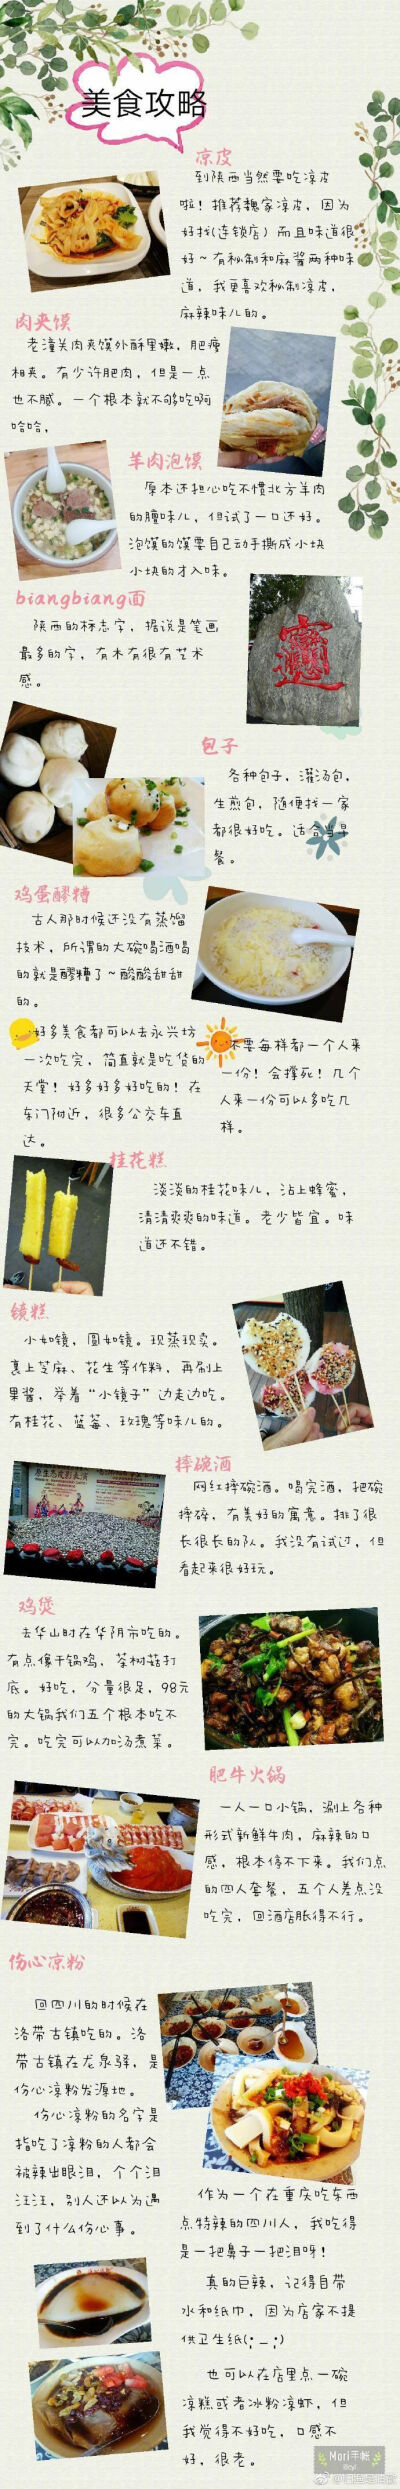 美食攻略
凉皮
到陕西当然要吃凉皮
啦！推荐魏家凉皮，因为
好找(连锁店) 而且味道很
好~有秘制和麻酱两种味
道，我更喜欢秘制凉皮，
麻辣味儿的。
肉夹馍
老潼关肉夹馍外酥里嫩，肥瘦
相夹。有少许肥肉，但是一点
也不腻。一个根本就不够吃啊
哈哈，
羊肉泡馍
原本还担心吃不惯北方羊肉
的膻味儿，但试了一口还好。
泡馍的馍要自己动手撕成小块
小块的才入味。
biangbiang面
陕西的标志字，据说是笔画
最多的字，有木有很有艺术
感。
包子
各种包子，灌汤包，
生煎包，随便找一家
都很好吃。适合当早
餐。
鸡蛋醪糟
古人那时候还没有蒸馏
技术，所谓的大碗喝酒喝
的就是醪糟了~酸酸甜甜
的。
好多美食都可以去永兴坊
一次吃完，简直就是吃货的
天堂！好多好多好吃的！在
东门附近，很多公交车直
达。
不要每样都一个人来
一份！会撑死！几个
人来一份可以多吃几
样。
桂花糕
淡淡的桂花味儿，沾上蜂蜜，
清清爽爽的味道。老少皆宜。味
道还不错。
镜糕
小如镜，圆如镜。现蒸现卖。
裹上芝麻、花生等作料，再刷上
果酱，举着“小镜子”边走边吃。
有桂花、蓝莓、玫瑰等味儿的。
摔碗酒
网红摔碗酒。喝完酒，把碗
摔碎，有美好的寓意。排了很
长很长的队。我没有试过，但
看起来很好玩。
鸡煲
去华山时在华阴市吃的。
有点像干锅鸡，茶树菇打
底。好吃，分量很足，98元
的大锅我们五个根本吃不
完。吃完可以加汤煮菜。
肥牛火锅
一人一口小锅，涮上各种
形式新鲜牛肉，麻辣的口
感，根本停不下来。我们点
的四人套餐，五个人差点没
吃完，回酒店胀得不行。
伤心凉粉
回四川的时候在
洛带古镇吃的。洛
带古镇在龙泉驿，是
伤心凉粉发源地。
伤心凉粉的名字是
指吃了凉粉的人都会
被辣出眼泪，个个泪
汪汪，别人还以为遇
到了什么伤心事。
作为一个在重庆吃东西
点特辣的四川人，我吃得
是一把鼻子一把泪呀！
真的巨辣，记得自带
水和纸巾，因为店家不提
供卫生纸(;¬_¬)
也可以在店里点一碗
凉糕或者冰粉凉虾，但
我觉得不好吃，口感不
好，很老。
Mori手帐